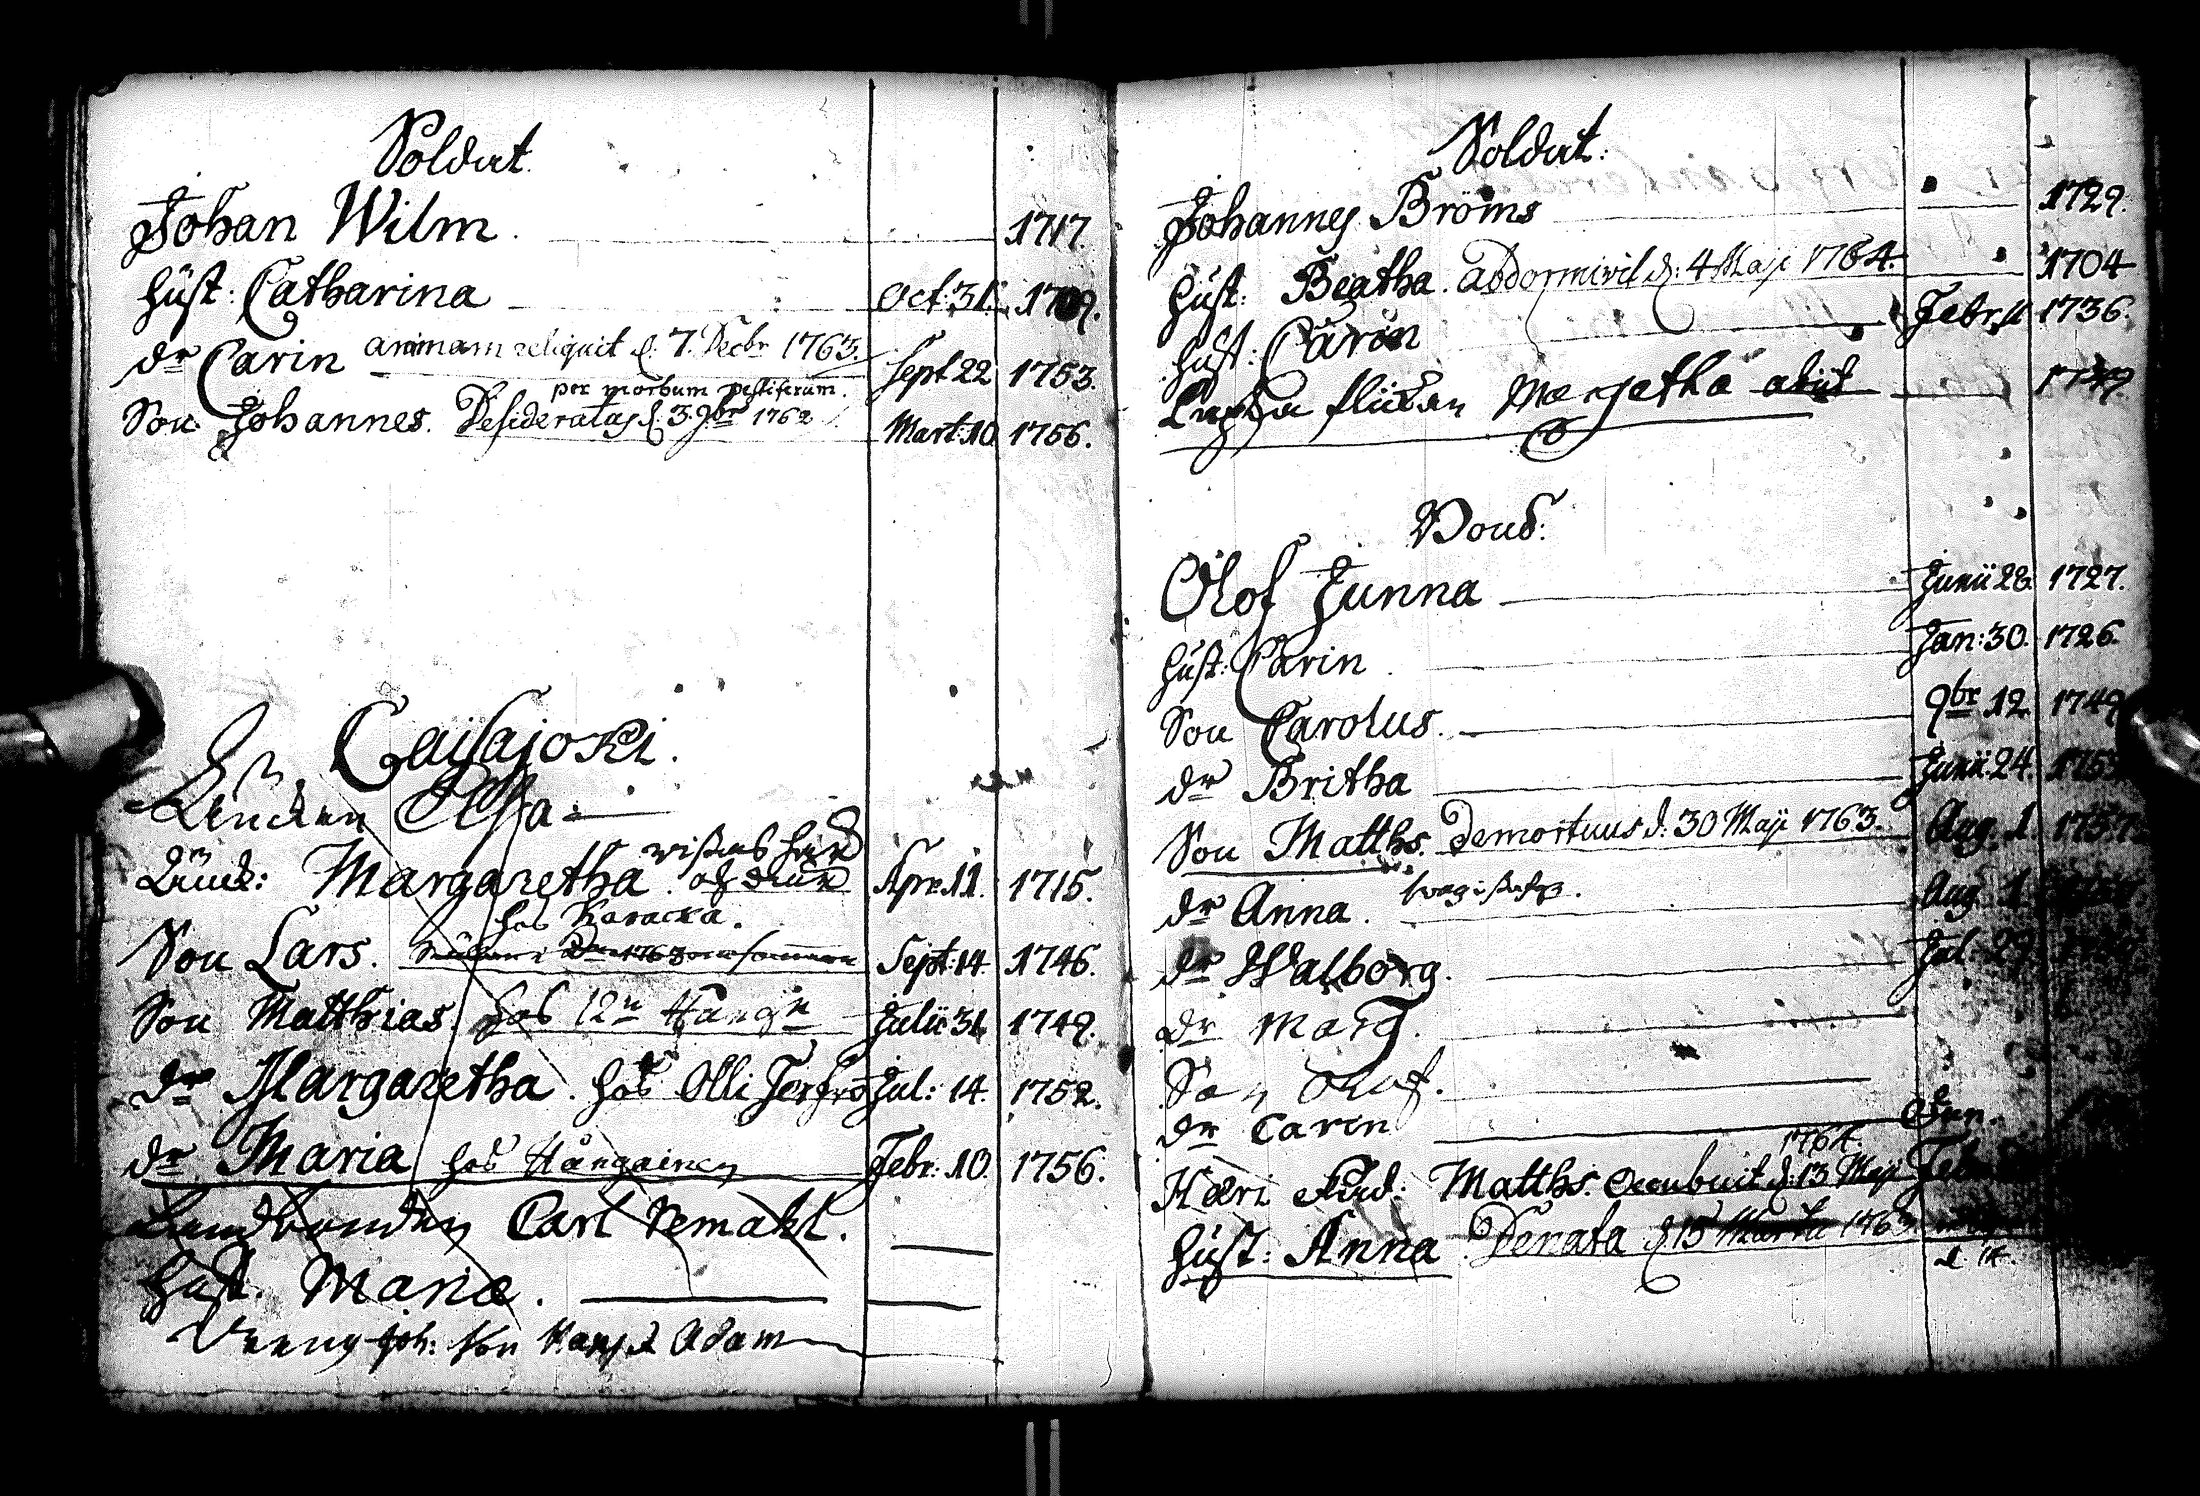 Soldat.
Johan Wilm. 1717.
Hust: Catharina Oct: 31. 1709.
dr Carin animam reliquit d. 7. Decbr 1763. Sept 22 1753.
per morbum pestiferum.
Son Johannes. Desideratus d. 3. 9br 1762 Mart: 10 1756.
Caisajoki.
Enckan Elssa
vistas här
Enck: Margaretha. Apr. 11. 1715.
hos Karacka.
Son Lars. 1763 Sept: 14. 1746.
Son Matthias. hos Julii 31 1749.
dr Margaretha. hos Olli Jul: 14. 1752.
dr Maria hos Hångainen Febr: 10. 1756.
Landbonden Carl Remahl.
Hust. Maria.
Dräng Joh: Son Adam
Soldat:
Johannes Bröms 1729.
Hust: Beatha. abdormivit d: 4 Maji 1764. 1704
Hust: Carin Febr. 11 1736.
flickan Margetha abiit
Bond:
Olof Junna Junii 28 1727.
Hust: Carin Jan: 30. 1726.
Son Carolus. 9br 12 1749
dr Britha Junii 24. 175
Son Matths. Demortuus d: 30 Maji 1763. Aug. 1. 1757
dr Anna. Aug 1
dr Walborg. Jul. 29
dr Marg.
Son Olof.
dr Carin
1764.
Matths. Occubuit d: 13 Maji Febr
Hust: Anna Denata d 15 Martii 1763
d. 14.